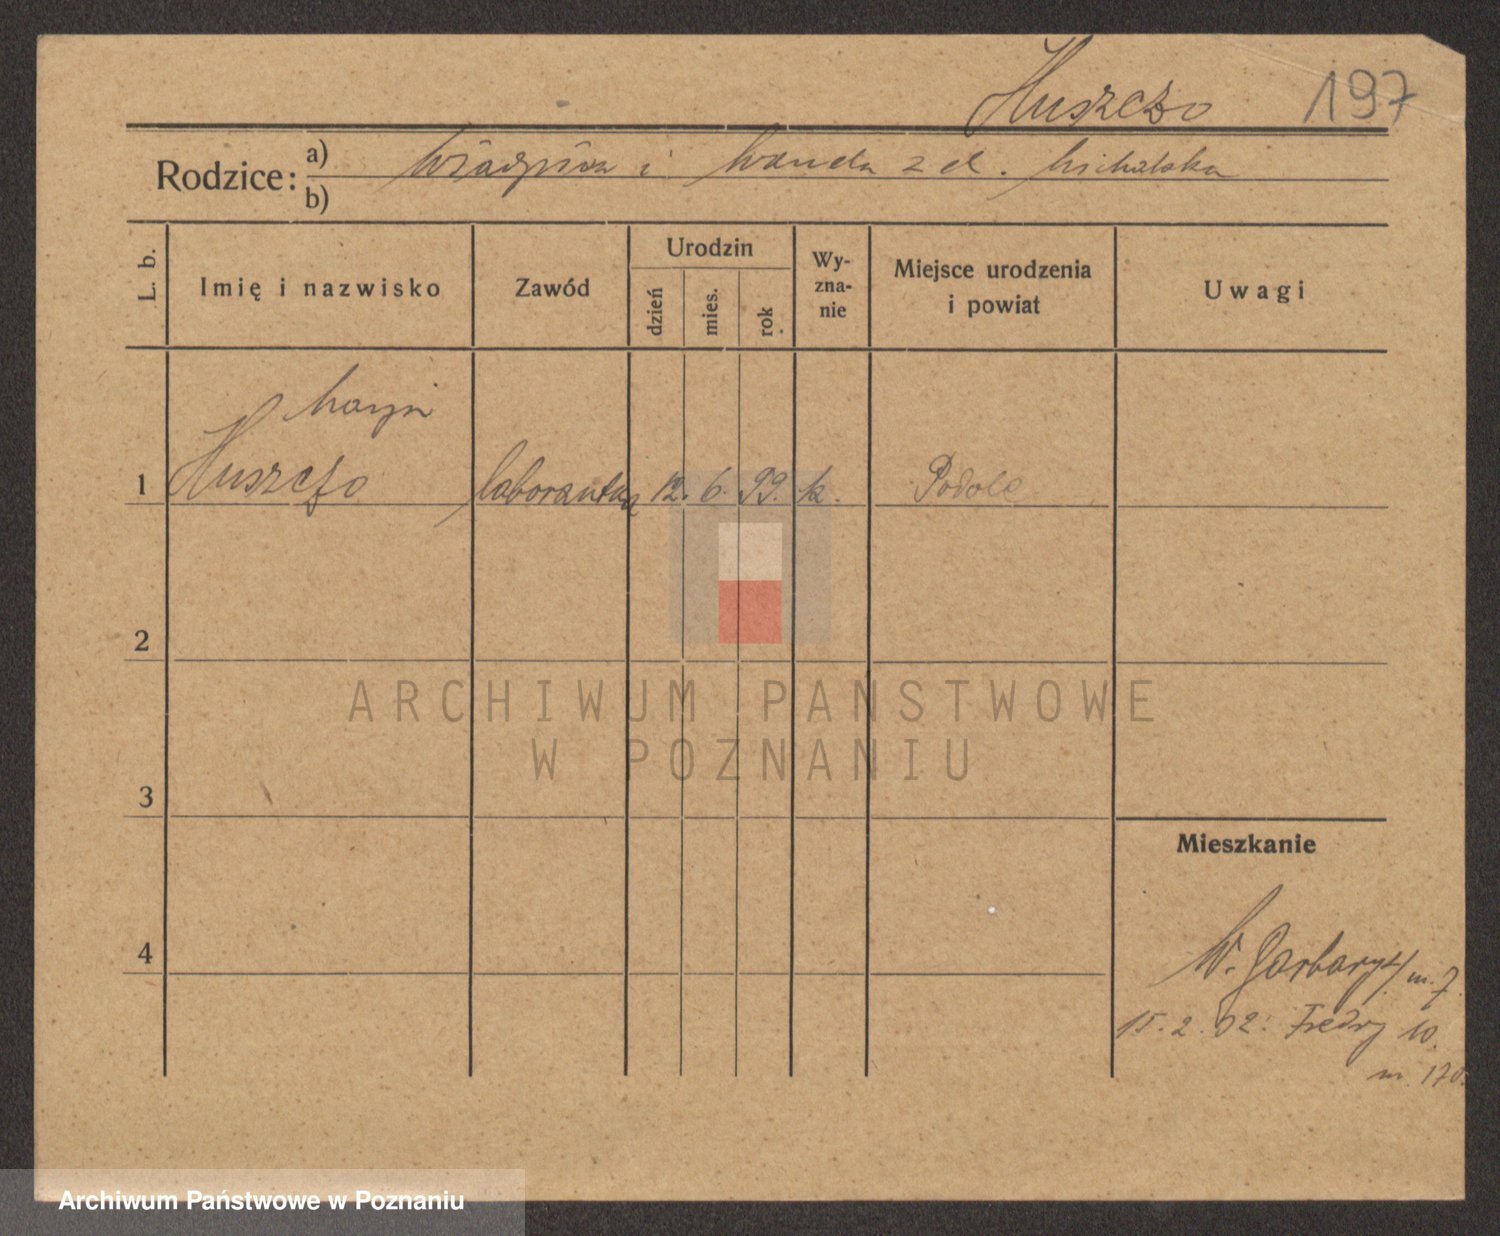 Huszczo 197
Rodzice: a) i Wanda z d. Michalska
b)
L. b. Imię i nazwisko Zawód Urodzin dzień mies. rok Wy-zna-nie Miejsce urodzenia i powiat Uwagi
Marja
1 Huszczo laborantka 12. 6. 99. k. Podole
2
ARCHIWUM PAŃSTWOWE
W POZNANIU
3
Mieszkanie
4
W. Garbary m. 7.
15. 2. 32: Fredry 10.
m. 170.
Archiwum Państwowe w Poznaniu